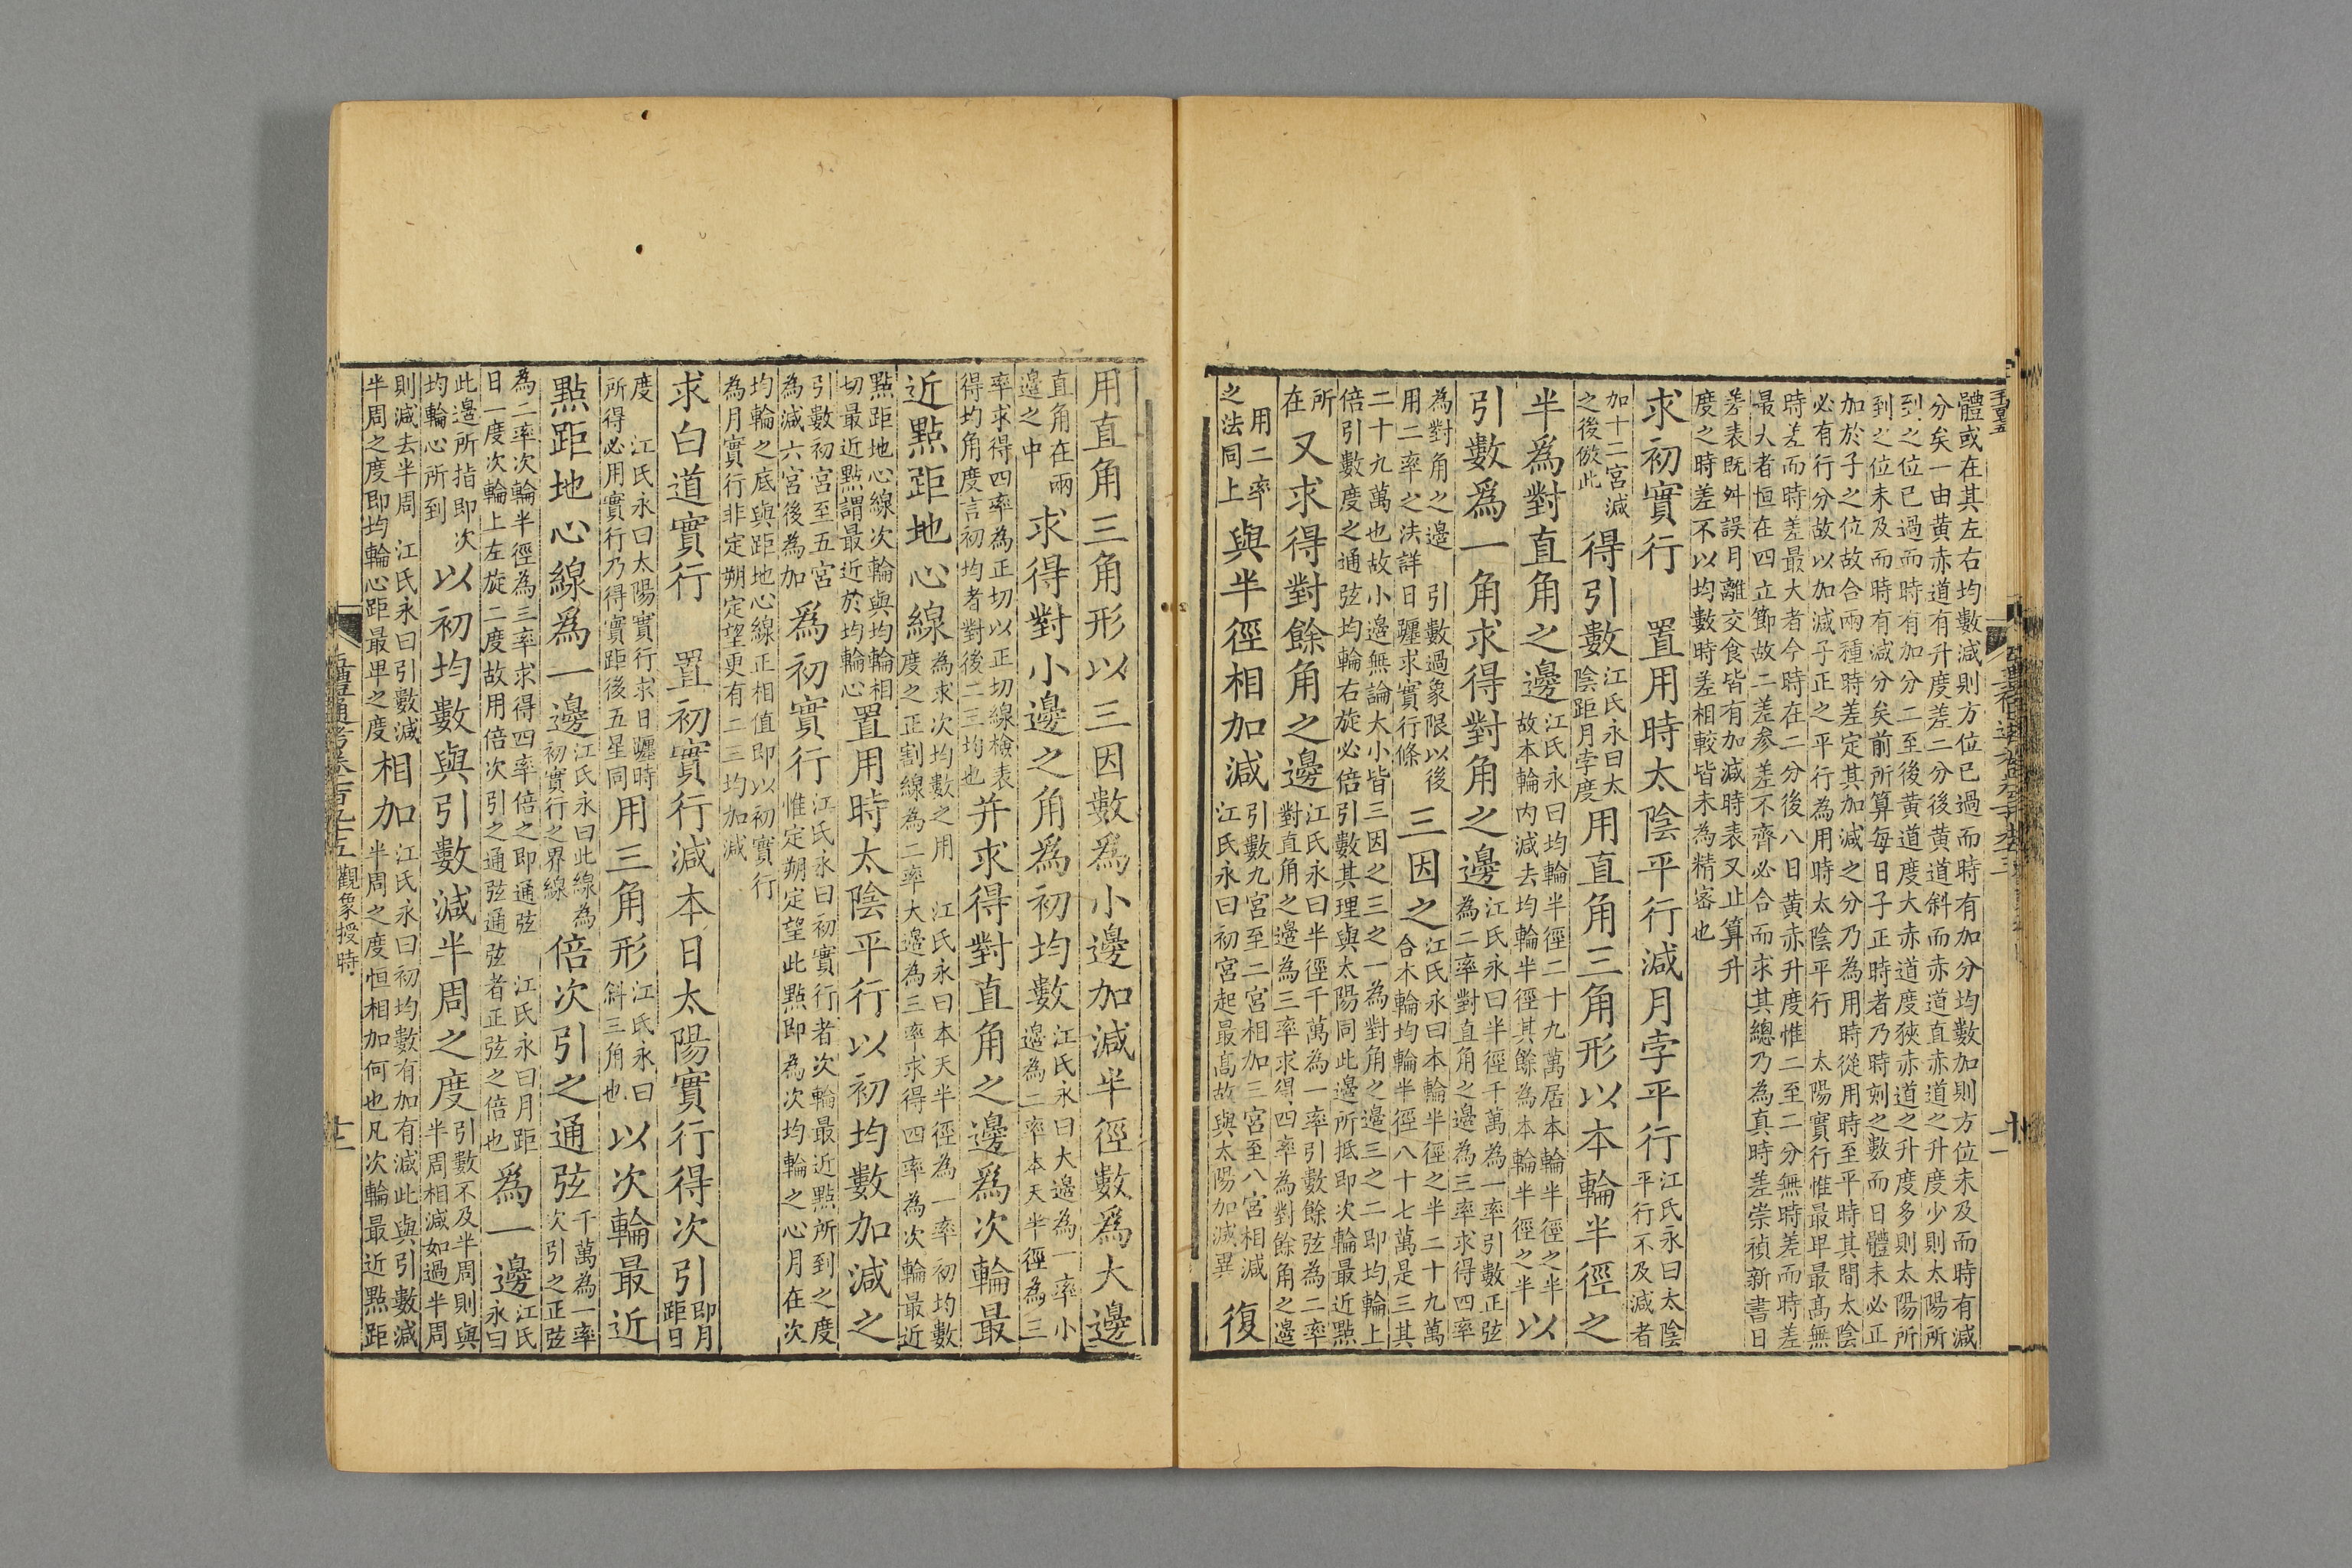 體或在其左右均數減則方位已過而時有加分均數加則方位未及而時有減
分矣一由黃赤道有升度差二分後黃道斜而赤道直赤道之升度少則太陽所
到之位已過而時有加分二至後黃道度大赤道度狹赤道之升度多則太陽所
到之位未及而時有減分矣前所算每日子正時者乃時刻之數而日體未必正
加於子之位故合兩種時差定其加減之分乃為用時從用時至平時其間太陰
必有行分故以加減子正之平行為用時太陰平行　太陽實行惟最卑最高無
時差而時差最大者今時在二分後八日黃赤升度惟二至二分無時差而時差
最大者恒在四立節故二差參差不齊必合而求其總乃為真時差崇禎新書日
差表既舛誤月離交食皆有加減時表又止算升
度之時差不以均數時差相較皆未為精密也
求初實行　置用時太陰平行減月孛平行江氏永曰太陰平行不及減者
加十二宮減之後倣此得引數江氏永曰太陰距月孛度用直角三角形以本輪半徑之
半爲對直角之邊江氏永曰均輪半徑二十九萬居本輪半徑之半故本輪內減去均輪半徑其餘為本輪半徑之半以
引數爲一角求得對角之邊江氏永曰半徑千萬為一率引數正弦為二率對直角之邊為三率求得四率
為對角之邊　引數過象限以後用二率之法詳日躔求實行條三因之江氏永曰本輪半徑之半二十九萬合木輪均輪半徑八十七萬是三其
二十九萬也故小邊無論大小皆三因之三之一為對角之邊三之二即均輪上
倍引數度之通弦均輪右旋必倍引數其理與太陽同此邊所抵即次輪最近點
所在又求得對餘角之邊江氏永曰半徑千萬為一率引數餘弦為二率對直角之邊為三率求得四率為對餘角之邊
用二率之法同上與半徑相加減引數九宮至二宮相加三宮至八宮相減江氏永曰初宮起最高故與太陽加減異復
用直角三角形以三因數爲小邊加減半徑數爲大邊
直角在兩邊之中求得對小邊之角爲初均數江氏永曰大邊為一率小邊為二率本天半徑為三
率求得四率為正切以正切線檢表得均角度言初均者對後二三均也并求得對直角之邊爲次輪最
近點距地心線為求次均數之用　江氏永曰本天半徑為一率初均數度之正割線為二率大邊為三率求得四率為次輪最近
點距地心線次輪與均輪相切最近點謂最近於均輪心置用時太陰平行以初均數加減之
引數初宮至五宮為減六宮後為加爲初實行江氏永曰初實行者次輪最近點所到之度惟定朔定望此點即為次均輪之心月在次
均輪之底與距地心線正相值即以初實行
為月實行非定朔定望更有二三均加減
求白道實行　置初實行減本日太陽實行得次引即月距日
度　江氏永曰太陽實行求日躔時所得必用實行乃得實距後五星同用三角形江氏永曰斜三角也以次輪最近
點距地心線爲一邊江氏永曰此線為初實行之界線倍次引之通弦千萬為一率次引之正弦
為二率次輪半徑為三率求得四率倍之即通弦　江氏永曰月距日一度次輪上左旋二度故用倍次引之通弦通弦者正弦之倍也爲一邊江氏永曰
此邊所指即次均輪心所到以初均數與引數減半周之度引數不及半周則與半周相減如過半周
則減去半周　江氏永曰引數減半周之度即均輪心距最卑之度相加江氏永曰初均數有加有減此與引數減半周之度恒相加何也凡次輪最近點距
觀象授時
十二